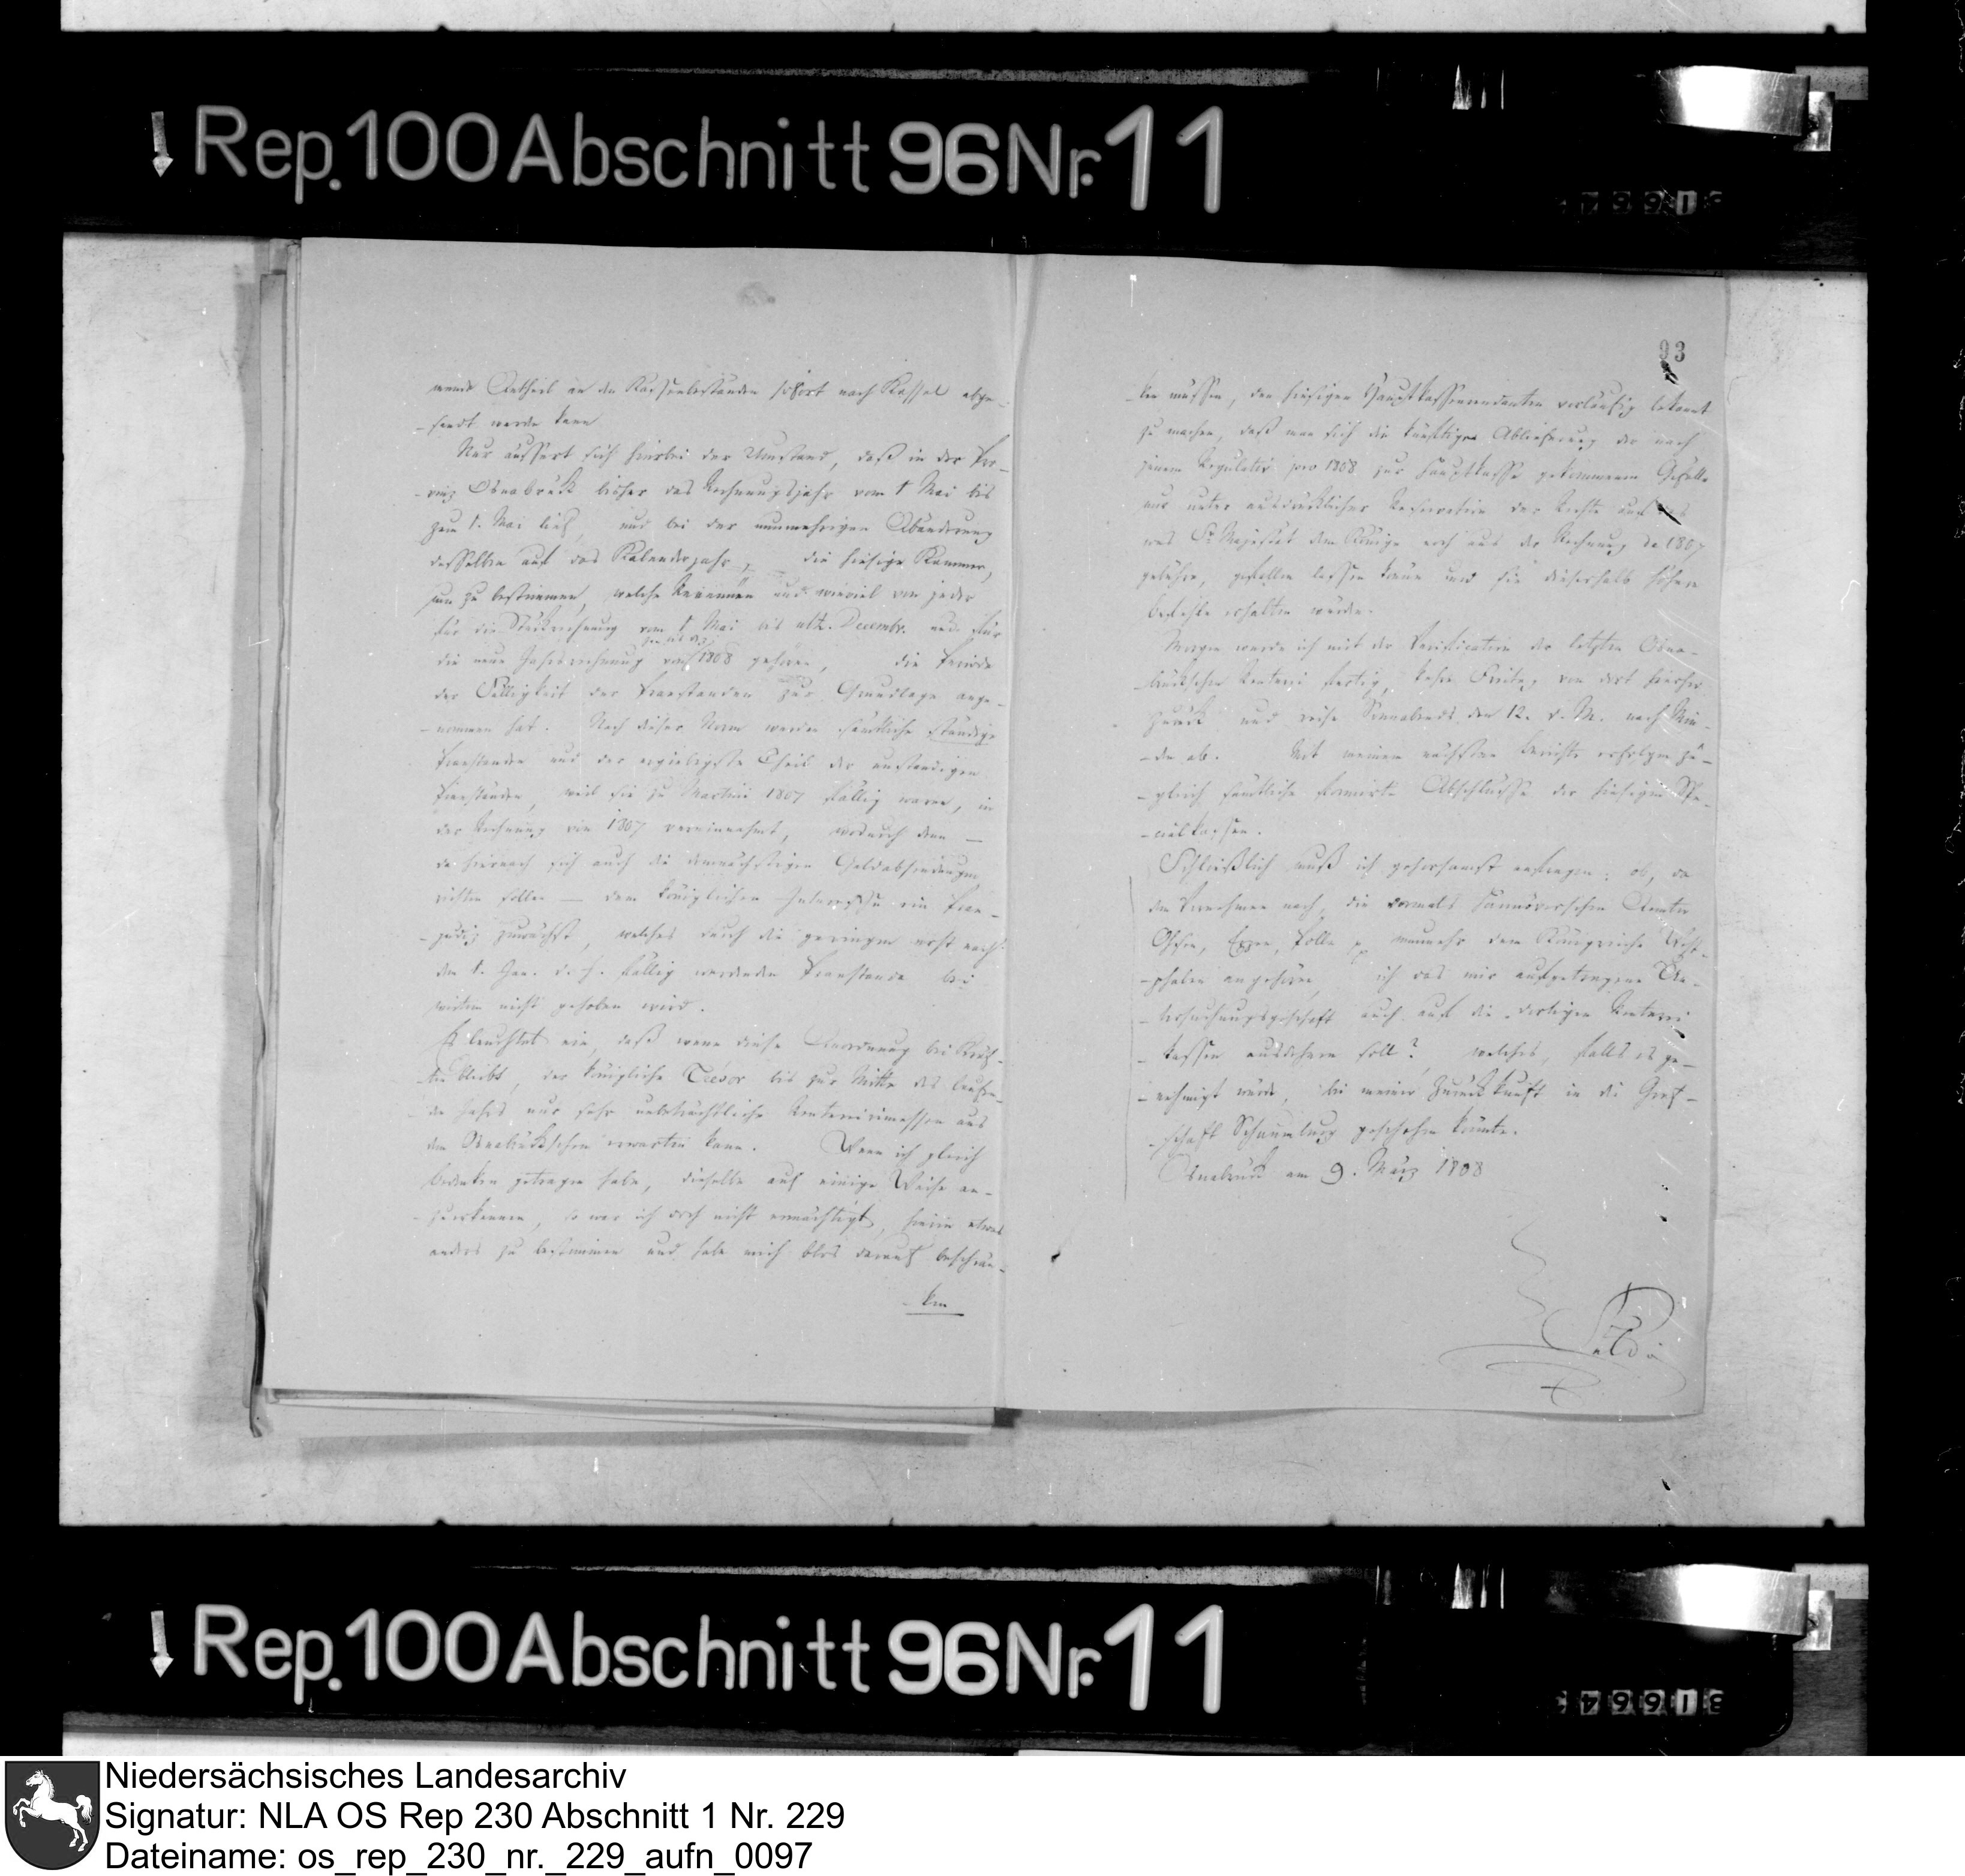 Rep. 100 Abschnitt 96 Nr. 11
93
Antheil an den Kassenbeständen sofort nach Kassel abge-
-sandt werden kann
Nur äussert sich hierbei der Umstand, daß in der Pro-
-vinz Osnabrück bisher das Rechnungsjahr vom 1 Mai bis
zum 1. Mai lief, und bei der nunmehrigen Abänderung
desselben auf das Kalenderjahr, die hiesige Kammer,
um zu bestimmen, welche Revenüen und wieviel von jeder
für die Stückrechnung vom 1 Mai bis ult. Decembr. und für
die neue Jahresrechnung 1808 gehören, die Periode
der Fälligkeit der Praestanden zur Grundlage ange-
-nommen hat. Nach dieser Norm werden sämtliche ständige
Praestanden und der ergiebigste Theil der unständigen
Praestanden, weil sie zu Martini 1807 fällig waren, in
der Rechnung von 1807 vereinnahmt, wodurch denn —
da hiernach sich auch die demnächstigen Geldabsendungen
richten sollen — dem königlichen Interesse ein Prae-
-judiz zuwächst, welches durch die geringen erst nach
dem 1. Jan. d. J. fällig werdenden Praestanda bei
weitem nicht gehoben wird.
Es leuchtet ein, daß wenn diese Anordnung bei Kräf-
-ten bleibt, der königliche Tresor bis zur Mitte des laufen-
-den Jahrs nur sehr unbeträchtliche aus
dem Osnabrückschen erwarten kann. Wenn ich gleich
Bedenken getragen habe, dieselbe auf einige Weise an-
-zuerkennen, so war ich doch nicht ermächtigt, hierin etwas
anders zu bestimmen und habe mich blos darauf beschrän-
-ken
-ken müssen, den hiesigen Hauptkassenrendanten vorläufig bekannt
zu machen, daß man sich die künftige Ablieferung der nach
jenem Regulativ pro 1808 zur Hauptkasse gekommenen Gefälle
nur unter ausdrücklicher Reservation der Rechte auf das
was Sr. Majestät dem Könige noch aus der Rechnung de 1807
gebühre, gefallen lassen könne und sie dieserhalb höhere
Befehle erhalten würde.
Morgen werde ich mit der Verification der letzten Osna-
-brückschen Rentei fertig, kehre Freitag von dort hierher
zurück und reise Sonnabends den 12. d. M. nach Min-
-den ab. Mit meinem nächsten Berichte erfolgen zu-
-gleich sämtliche formirte Abschlüsse der hiesigen Spe-
-cialkassen.
Schließlich muß ich gehorsamst anfragen: ob, da
dem Vernehmen nach, die vormals Hannöverschen Aemter
Ohsen, Polle nunmehr dem Königreiche West-
-phalen angehören, ich das mir aufgetragene Un-
-tersuchungsgeschäft auch auf die dortigen Rentei-
-kassen ausdehnen soll? welches, falls es ge-
-nehmigt würde, bei meiner Zurückkunft in die Graf-
-schaft Schaumburg geschehen könnte.
Osnabrück am 9. März 1808
Rep. 100 Abschnitt 96 Nr. 11
Niedersächsisches Landesarchiv
Signatur: NLA OS Rep 230 Abschnitt 1 Nr. 229
Dateiname: os_rep_230_nr._229_aufn_0097